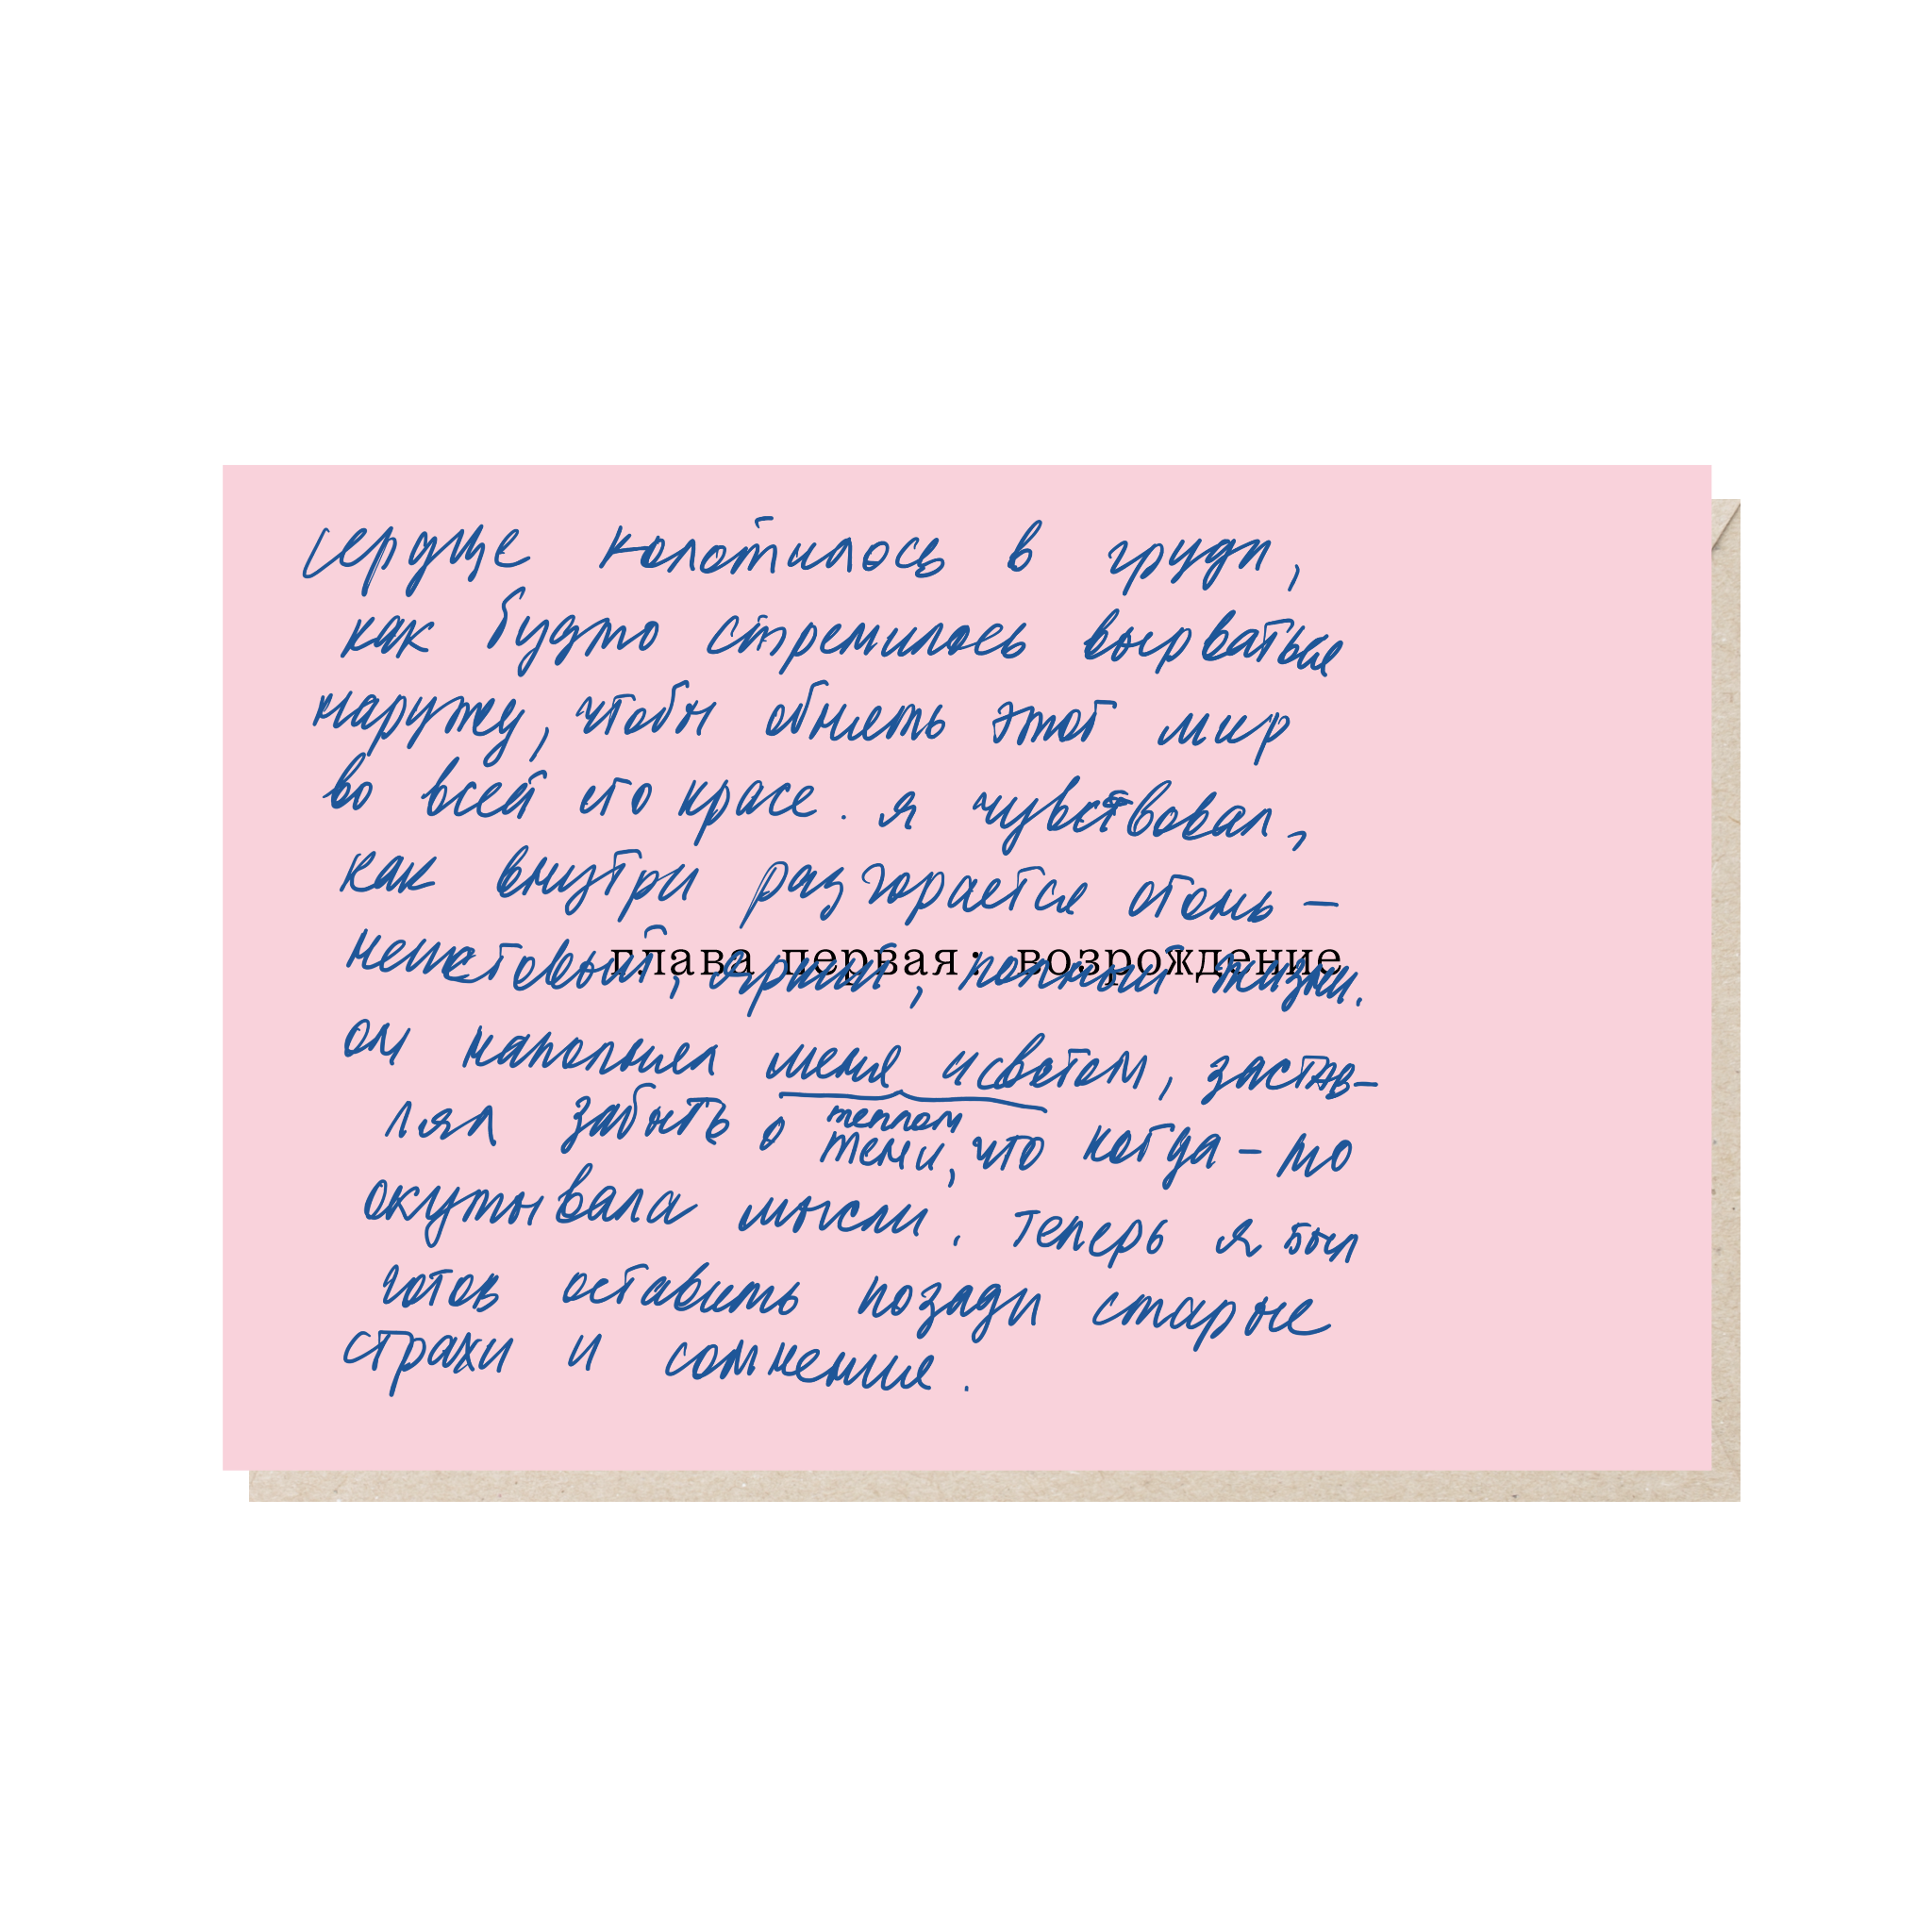 сердце колотилось в груди,
как будто стремилось вырваться
наружу, чтобы обнять этот мир
во всей его красе. я чувствовал,
как внутри разгорается огонь –
неистовый, яркий, полный жизни.
глава первая: возрождение
он наполнял меня и светом, застав-
теплом
лял забыть о тени, что когда-то
окутывала мысли. теперь я был
готов оставить позади старые
страхи и сомнения.